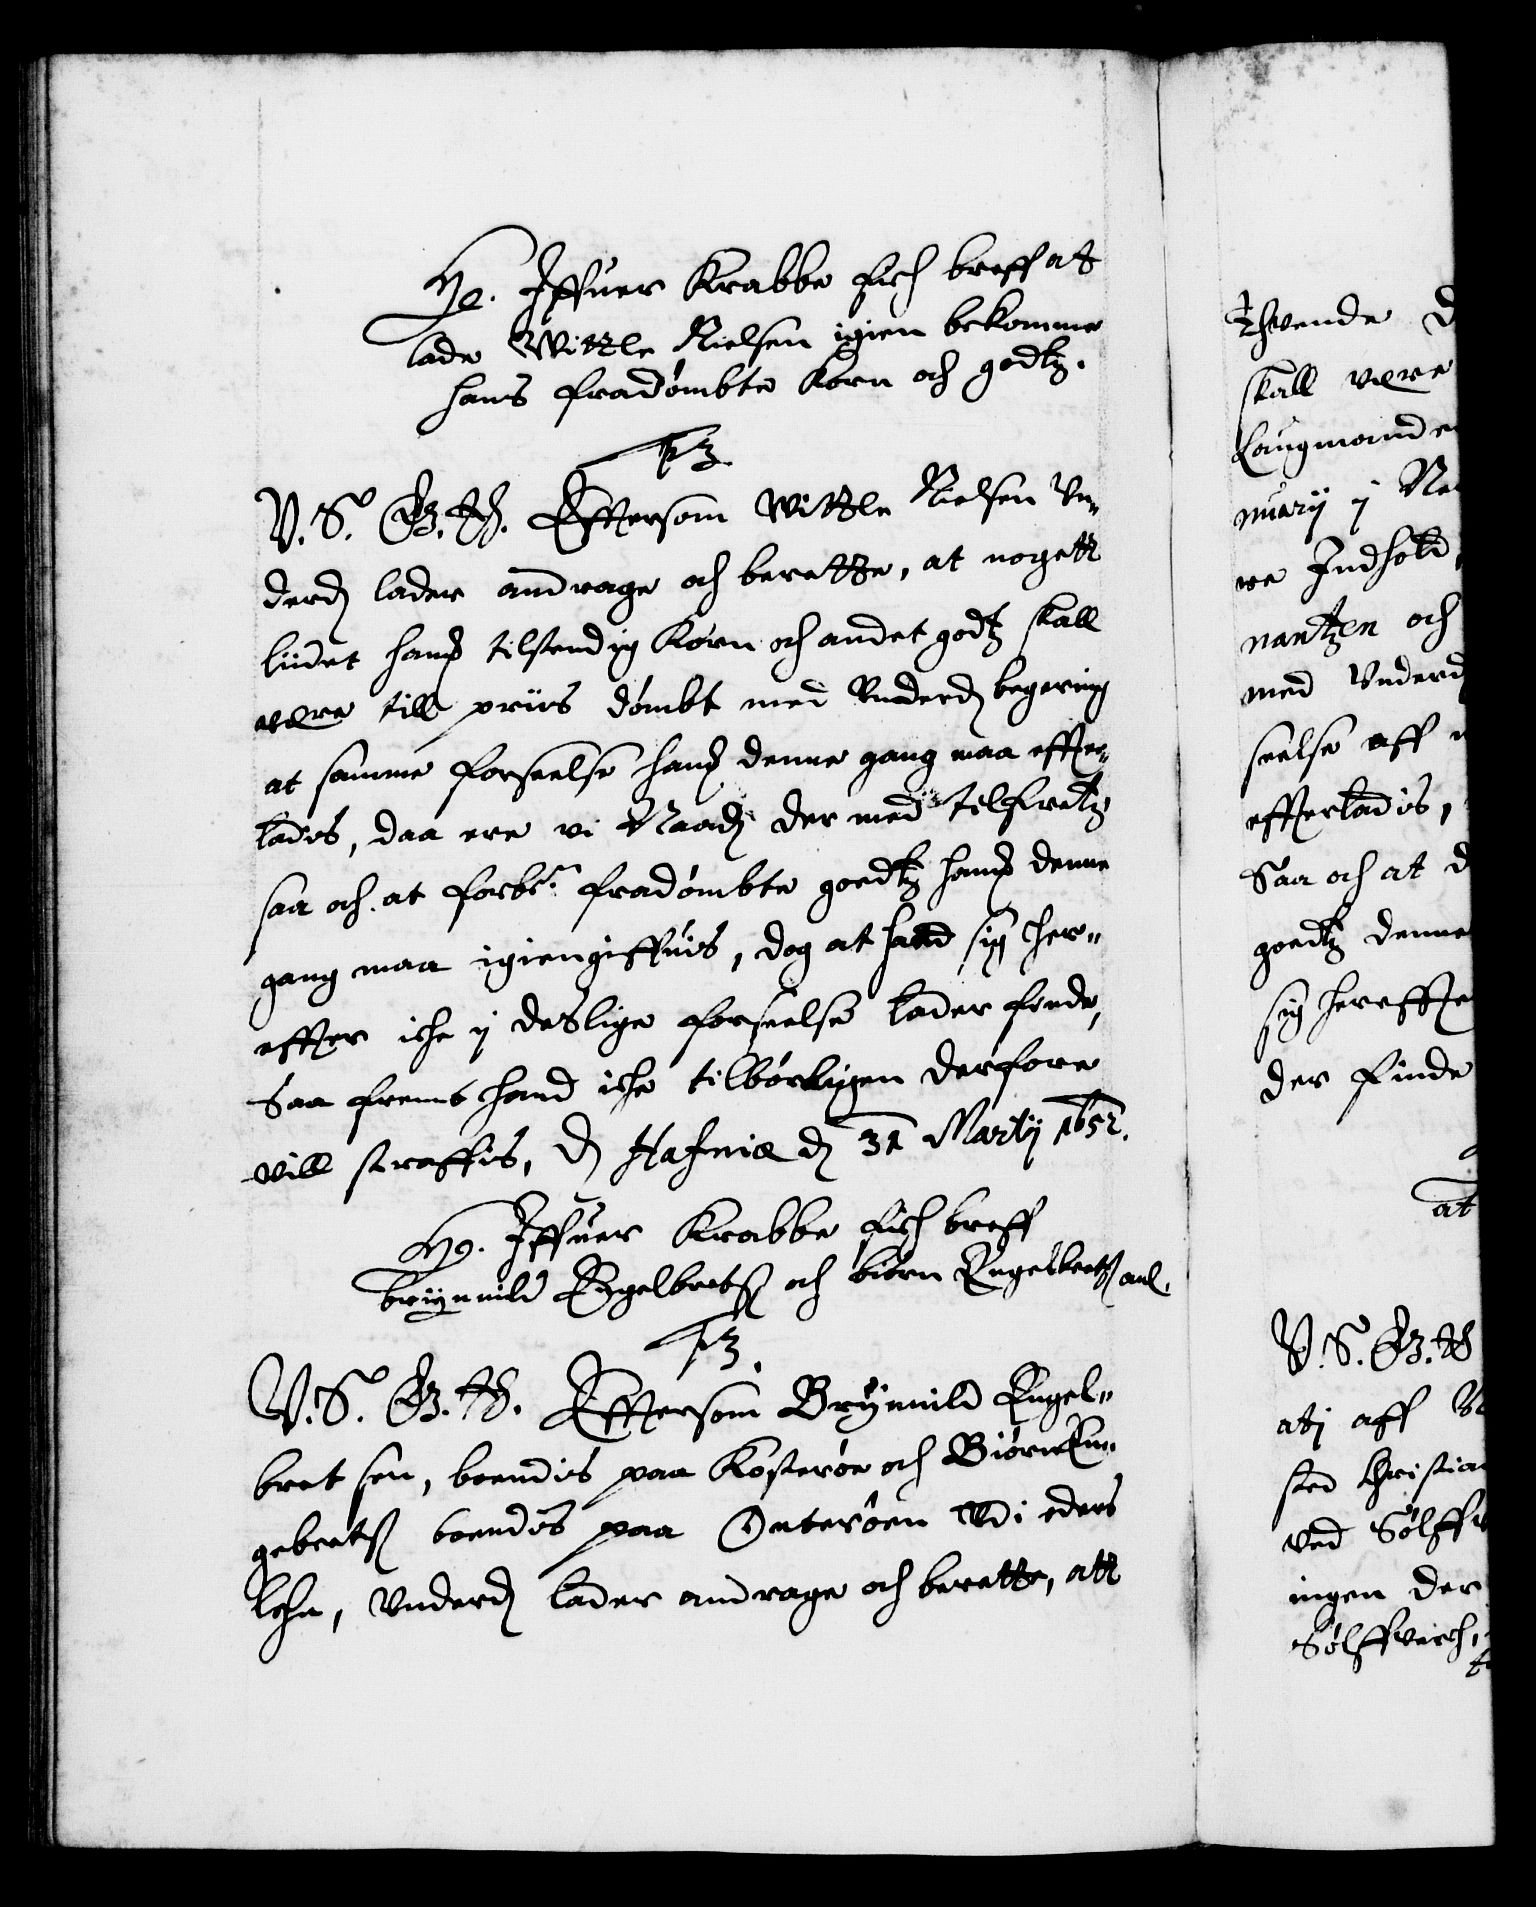 H. Iffuer Krabbe fich breff at
lade Wittle Nielsen igien bekomme
hans fradømbte Korn och godtz.
F3
V. S. G. T. Effterson Wittle Nielsen Vn-
derd lader andrage och berette, at nogett
liidet hans tilstendig Korn och andet godtz skall
være till priis dømbt med Vnderd begering
at samme forseelse hans denne gang maa effter-
ladis, daa ere vi Naad der med tilfretz
saa och at forbe. fradømbte goedtz hans denne
gang maa igiengiffuis, dog at hand sig her-
effter iche ij deslige forseelse lader finde,
Saa fremt hand iche tilbørligen derfore
vill straffis, D Hafniæ d 31 Martij 1652.
H. Iffuer Krabbe fich breff
Brynnild Engelbretß och biørn Engelbretß anl.
F3.
V. S. G. T. Effterson Brynnild Engel-
bret sen, boendis paa Kosterøe och Biørn En-
gebretß boendis paa Outerøen vdi eders
lehn, Vnderd lader andrage och berette, att
Thvende
skall være
Laugmande
nuarij j
re Indhold,
nantzen och
med Vnderd
seelse aff
effterladis,
Saa och at d
goedtz denne
sig hereffte
der finde
at
V. S. G. T
atj aff
sted Christian
ved Sølff
ingen der
Sølffverch,